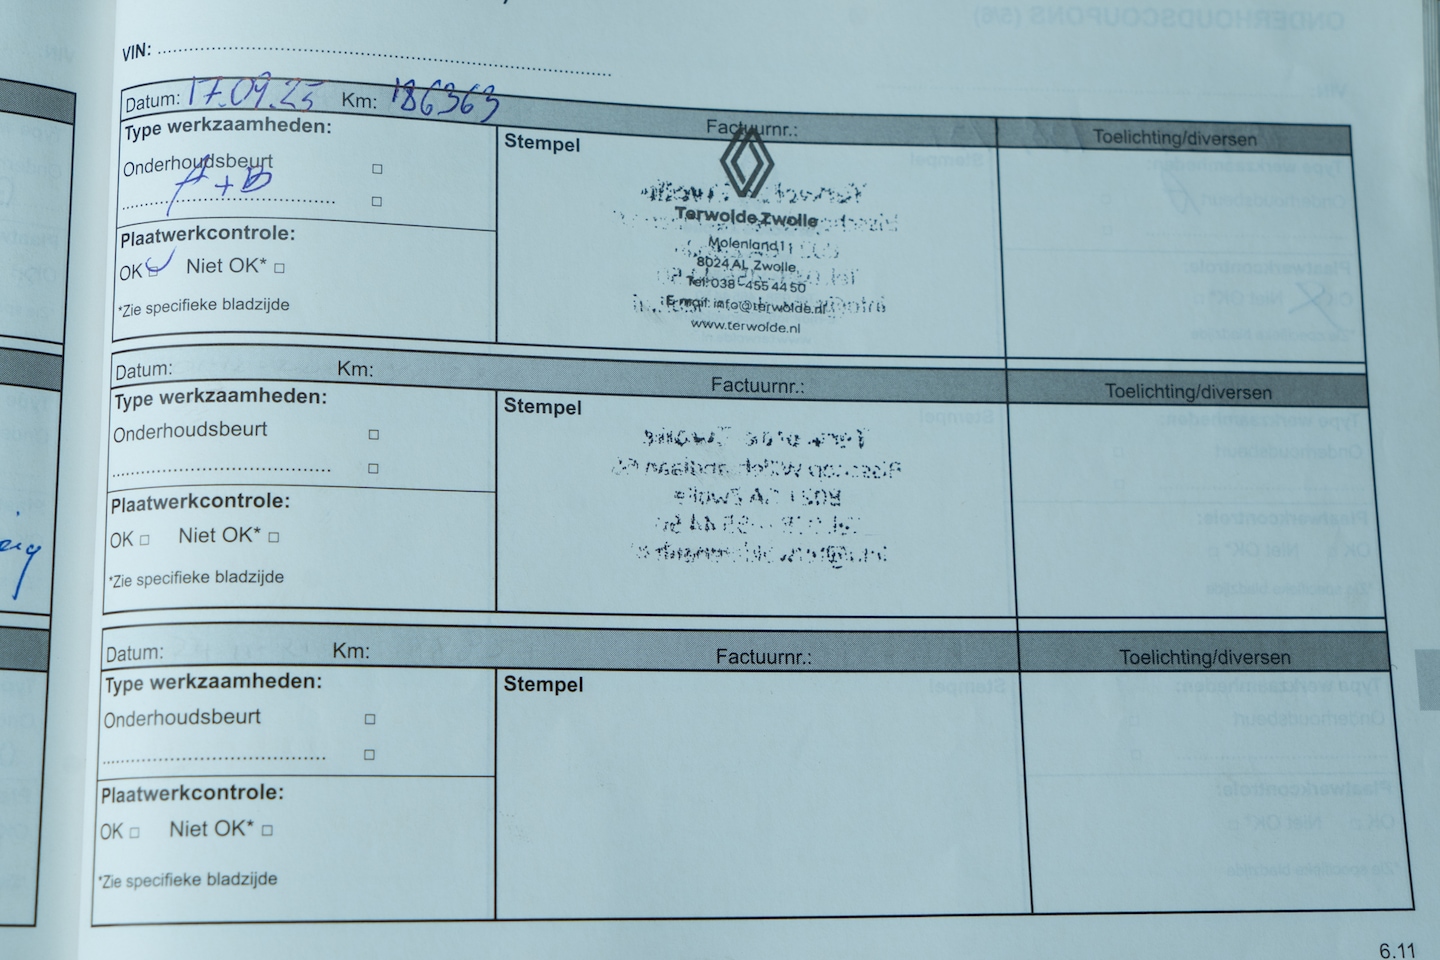 VIN:
Datum: 17.09.25 Km: 186363 Factuurnr.: Toelichting/diversen
Type werkzaamheden:
Onderhoudsbeurt
A+B
Plaatwerkcontrole:
OK Niet OK*
*Zie specifieke bladzijde
Stempel
Terwolde Zwolle
Molenland 11
8024 AL Zwolle
Tel: 038-455 44 50
E-mail: info@terwolde.nl
www.terwolde.nl
Datum: Km: Factuurnr.: Toelichting/diversen
Type werkzaamheden:
Onderhoudsbeurt
Plaatwerkcontrole:
OK Niet OK*
*Zie specifieke bladzijde
Stempel
Datum: Km: Factuurnr.: Toelichting/diversen
Type werkzaamheden:
Onderhoudsbeurt
Plaatwerkcontrole:
OK Niet OK*
*Zie specifieke bladzijde
Stempel
6.11